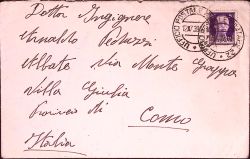 Dottor Ingegnere
Arnaldo Peduzzi
Albate via Monte Grappa
villa Giulia
Como
Italia
UFFICIO POSTALE